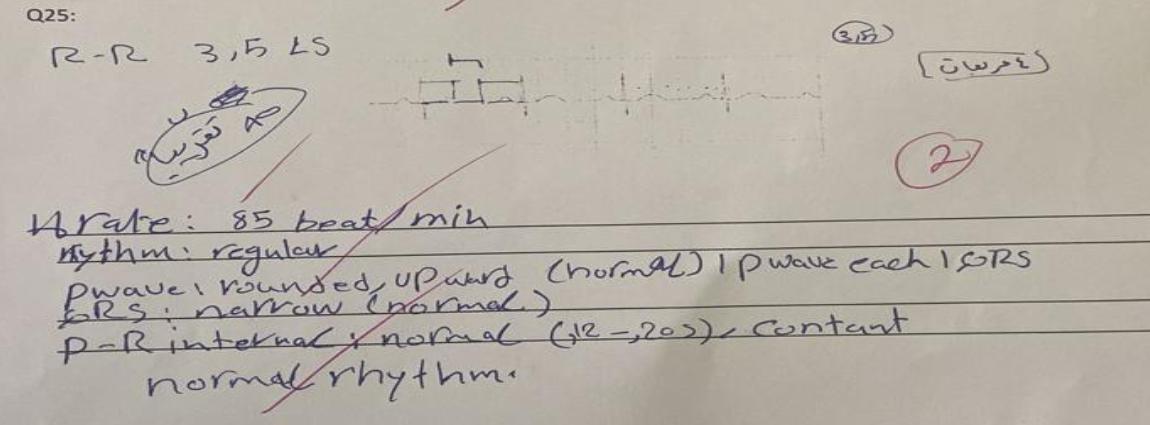 Q25:
R-R 3,5 LS
(3,5)
(٤ مربعات)
تقريبا
2
Hrate: 85 beat/min
Rythm: regular
Pwave: rounded, upward (normal) 1 pwave each 1 QRS
QRS: narrow (normal)
P-R internal: normal (,12 -,20s), contant
normal rhythm.